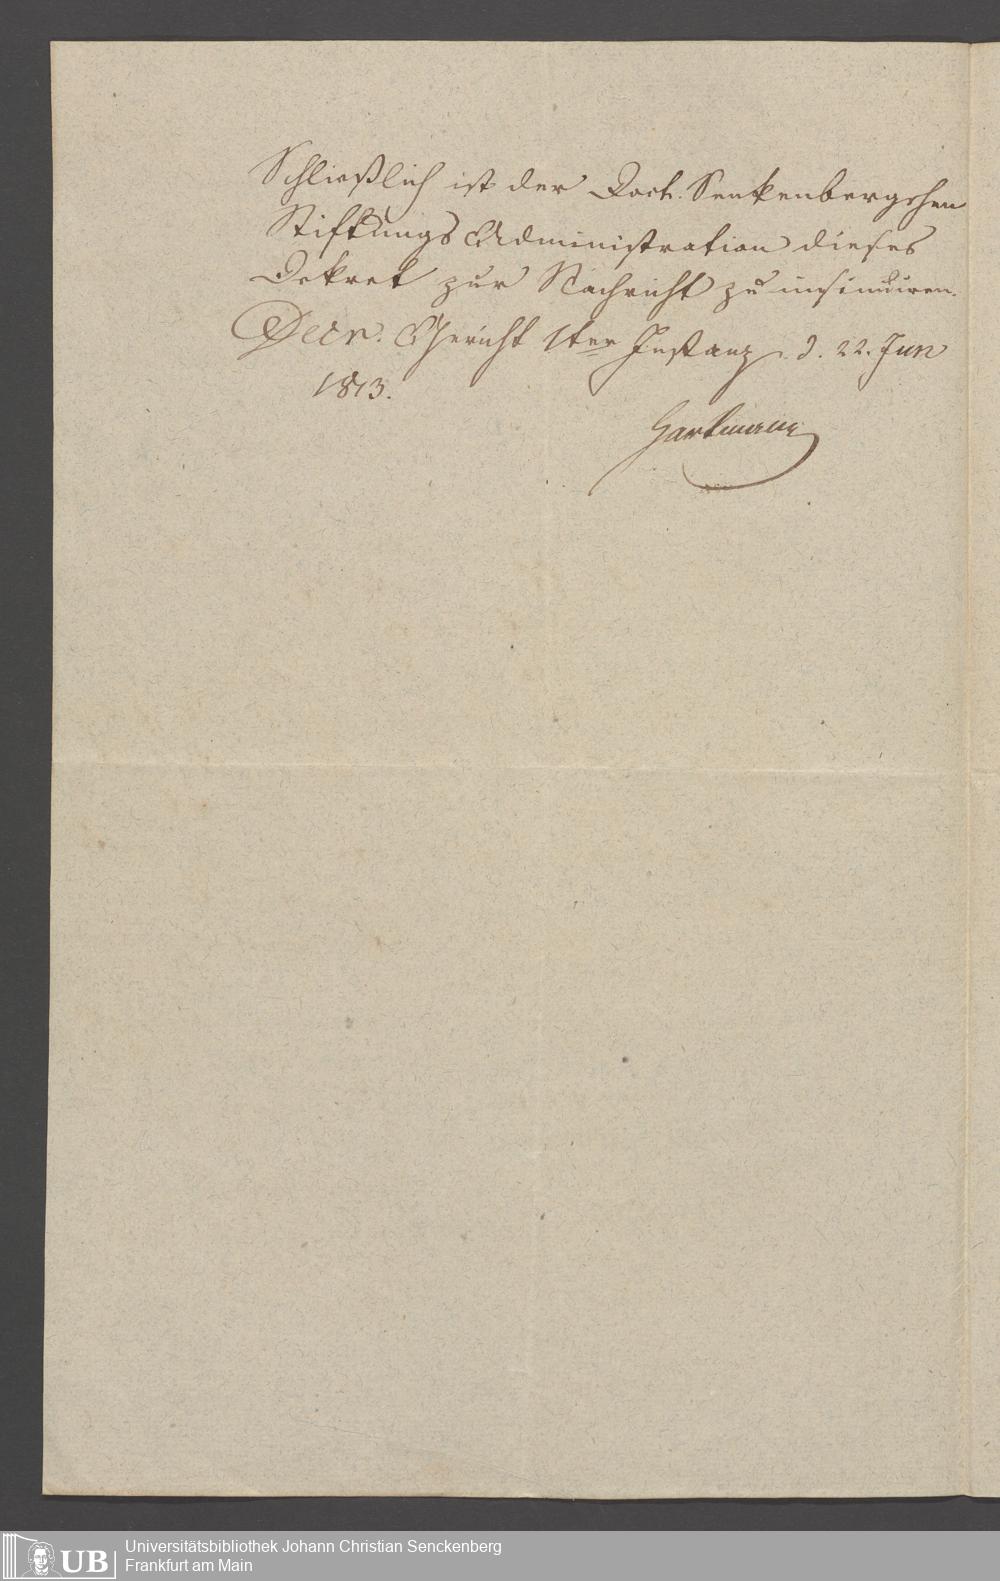 Schließlich ist der Doct. Senkenbergschen
Stiftungs Administration dieses
Dekret zur Nachricht zu insinuiren.
Decr. Gericht 1ter Instanz d. 22. Jun
1813.
Hartmann
UB
Universitätsbibliothek Johann Christian Senckenberg
Frankfurt am Main